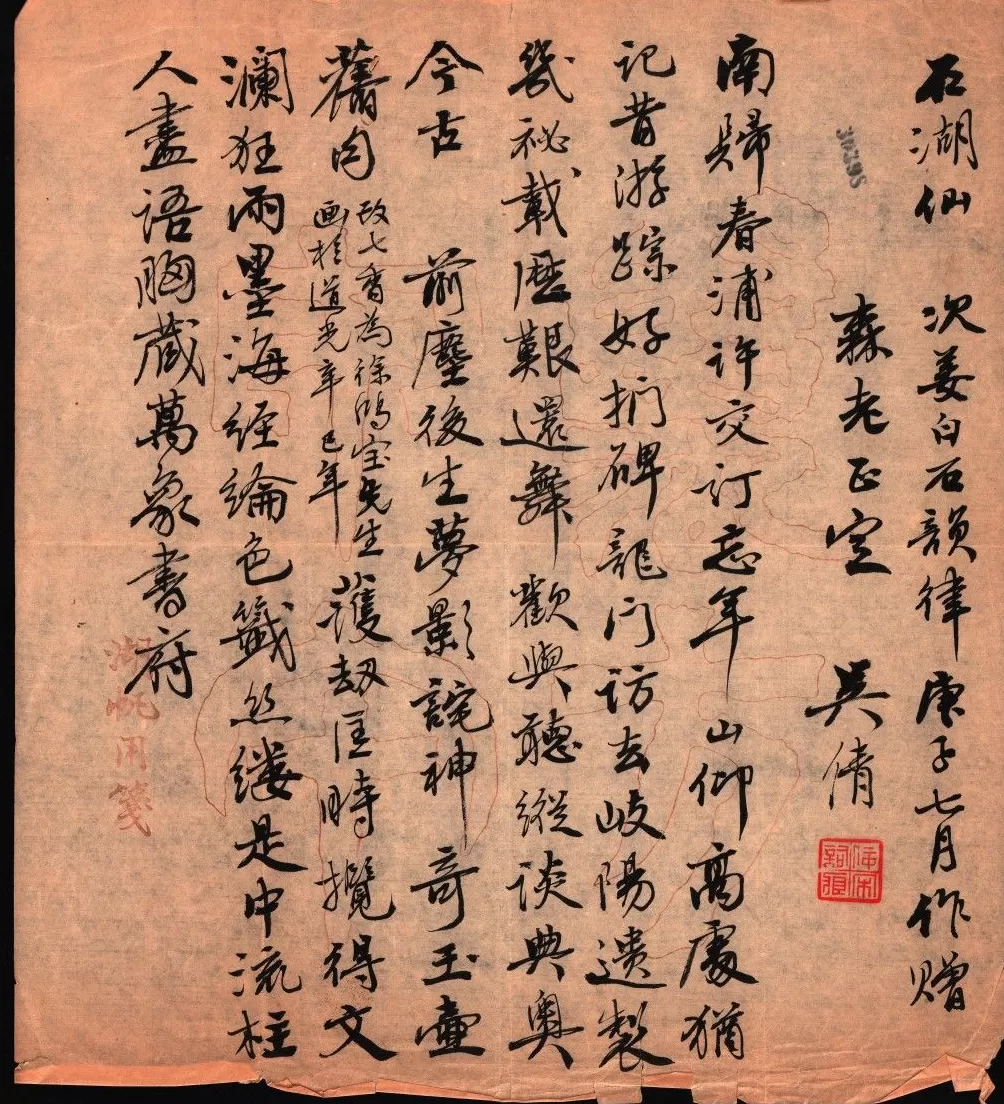 石湖仙 次姜白石韻律 庚子七月作赠
森老正定 吴倩
南歸春浦許交訂忘年 山仰高處猶
记昔游踪好捫碑龍门访去岐陽遗製
幾祕載歷艱還舞歡與聽縱谈典奥
今古 前塵後生夢影詫神奇玉壺
舊白 改七香為徐鴻宝先生
画於道光辛巳年 護劫匡時攬得文
瀾狂雨墨海经綸色籤丝缕是中流柱
人盡语胸藏萬象書府
湖帆用箋